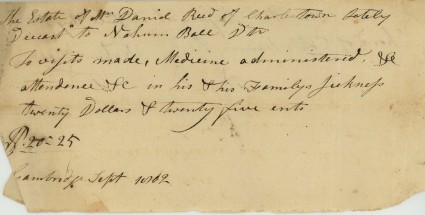 The Estate of Mr. Daniel Reed of Charlestown lately
Deceast to Nahum Ball Dtr
To visits made, Medicine administered &c
attendence &C in his & his Familys sickness
twenty Dollars & twenty five cnts
D. 20=25
Cambridge Sept